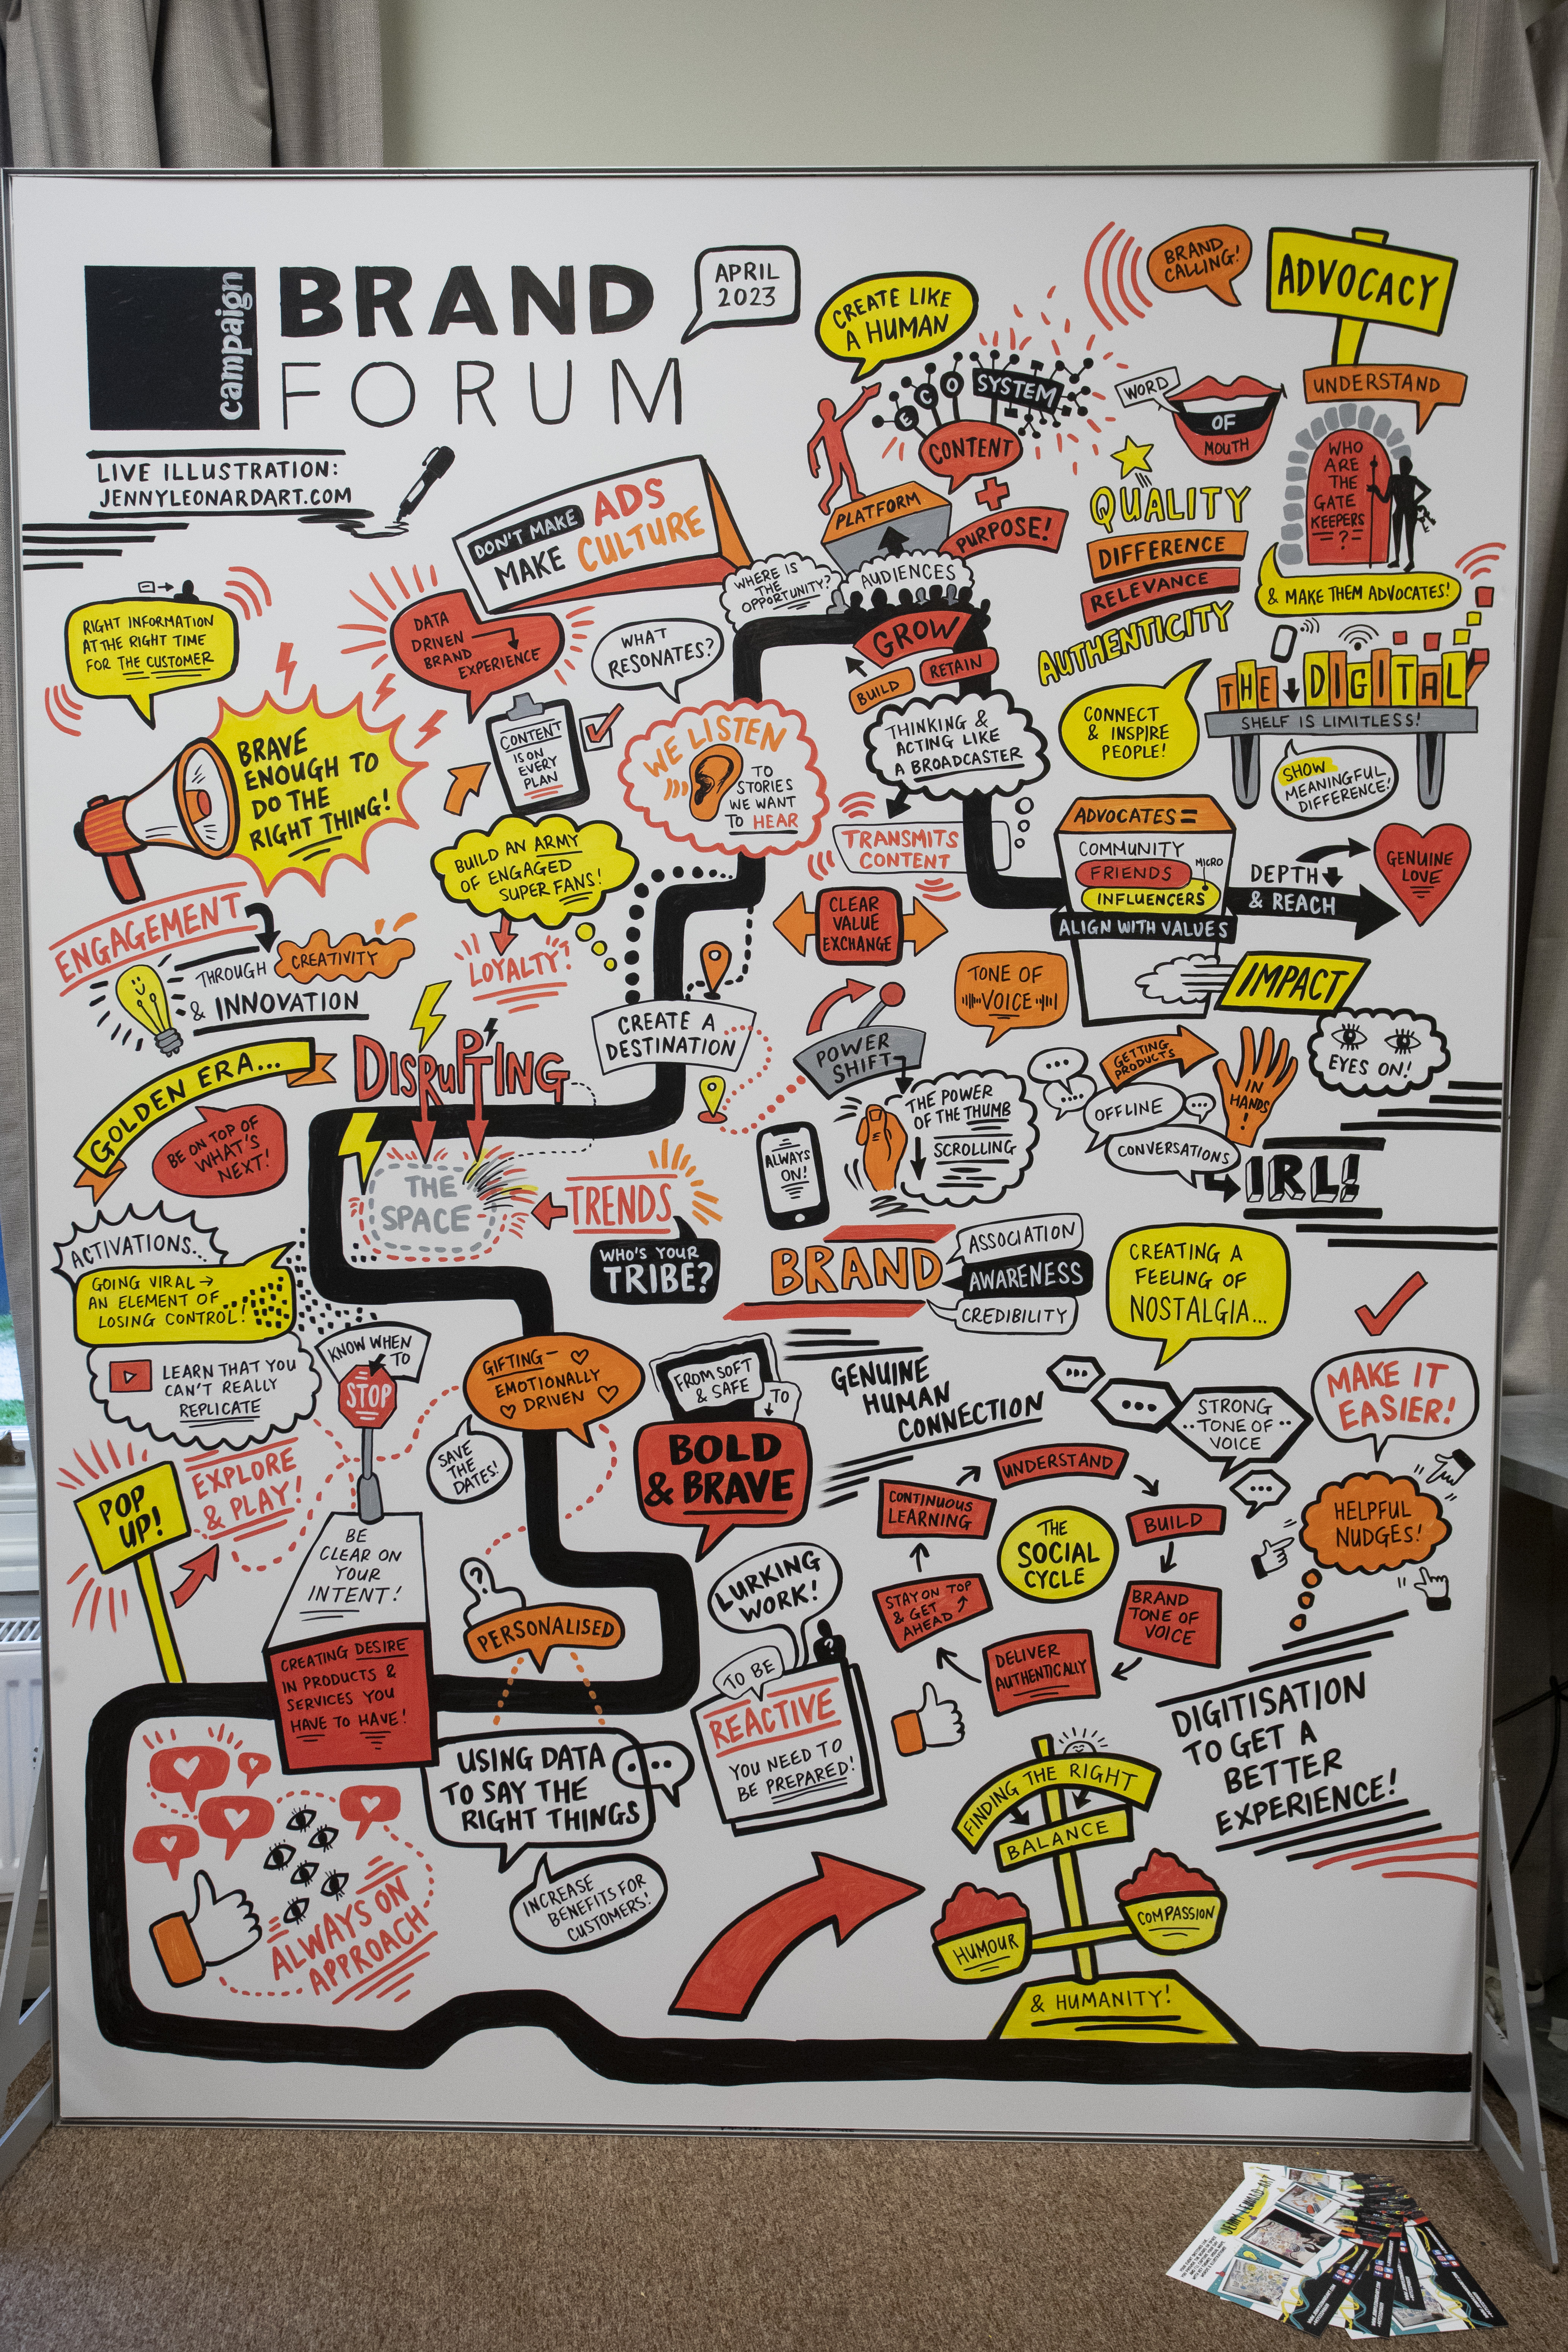 campaign
BRAND
FORUM
APRIL
2023
LIVE ILLUSTRATION:
JENNYLEONARDART.COM
CREATE LIKE
A HUMAN
ECO SYSTEM
CONTENT
+
PURPOSE!
PLATFORM
BRAND
CALLING!
ADVOCACY
UNDERSTAND
WORD
OF
MOUTH
WHO
ARE
THE
GATE
KEEPERS
?
& MAKE THEM ADVOCATES!
QUALITY
DIFFERENCE
RELEVANCE
AUTHENTICITY
DON'T MAKE ADS
MAKE CULTURE
WHERE IS
THE
OPPORTUNITY?
AUDIENCES
GROW
BUILD
RETAIN
RIGHT INFORMATION
AT THE RIGHT TIME
FOR THE CUSTOMER
DATA
DRIVEN
BRAND
EXPERIENCE
WHAT
RESONATES?
BRAVE
ENOUGH TO
DO THE
RIGHT THING!
CONTENT
IS ON
EVERY
PLAN
WE LISTEN
TO
STORIES
WE WANT
TO HEAR
THINKING &
ACTING LIKE
A BROADCASTER
TRANSMITS
CONTENT
CONNECT
& INSPIRE
PEOPLE!
THE DIGITAL
SHELF IS LIMITLESS!
SHOW
MEANINGFUL
DIFFERENCE!
BUILD AN ARMY
OF ENGAGED
SUPER FANS!
LOYALTY?
ADVOCATES =
COMMUNITY
FRIENDS
MICRO
INFLUENCERS
ALIGN WITH VALUES
DEPTH
& REACH
GENUINE
LOVE
CLEAR
VALUE
EXCHANGE
ENGAGEMENT
THROUGH CREATIVITY
& INNOVATION
TONE OF
VOICE
IMPACT
EYES ON!
CREATE A
DESTINATION
POWER
SHIFT
THE POWER
OF THE THUMB
SCROLLING
ALWAYS
ON!
GETTING
PRODUCTS
IN
HANDS
!
OFFLINE
CONVERSATIONS
IRL!
GOLDEN ERA...
BE ON TOP OF
WHAT'S
NEXT!
DISRUPTING
THE
SPACE
TRENDS
WHO'S YOUR
TRIBE?
BRAND
ASSOCIATION
AWARENESS
CREDIBILITY
CREATING A
FEELING OF
NOSTALGIA...
ACTIVATIONS...
GOING VIRAL →
AN ELEMENT OF
LOSING CONTROL!
LEARN THAT YOU
CAN'T REALLY
REPLICATE
KNOW WHEN
TO
STOP
GIFTING –
EMOTIONALLY
DRIVEN
SAVE
THE
DATES!
FROM SOFT
& SAFE
TO
BOLD
& BRAVE
GENUINE
HUMAN
CONNECTION
STRONG
TONE OF
VOICE
MAKE IT
EASIER!
HELPFUL
NUDGES!
POP
UP!
EXPLORE
& PLAY!
BE
CLEAR ON
YOUR
INTENT!
CREATING DESIRE
IN PRODUCTS &
SERVICES YOU
HAVE TO HAVE!
?
PERSONALISED
LURKING
WORK!
?
TO BE
REACTIVE
YOU NEED TO
BE PREPARED!
THE
SOCIAL
CYCLE
UNDERSTAND
BUILD
BRAND
TONE OF
VOICE
DELIVER
AUTHENTICALLY
STAY ON TOP
& GET
AHEAD
CONTINUOUS
LEARNING
DIGITISATION
TO GET A
BETTER
EXPERIENCE!
USING DATA
TO SAY THE
RIGHT THINGS
INCREASE
BENEFITS FOR
CUSTOMERS!
ALWAYS ON
APPROACH
FINDING THE RIGHT
BALANCE
HUMOUR
COMPASSION
& HUMANITY!